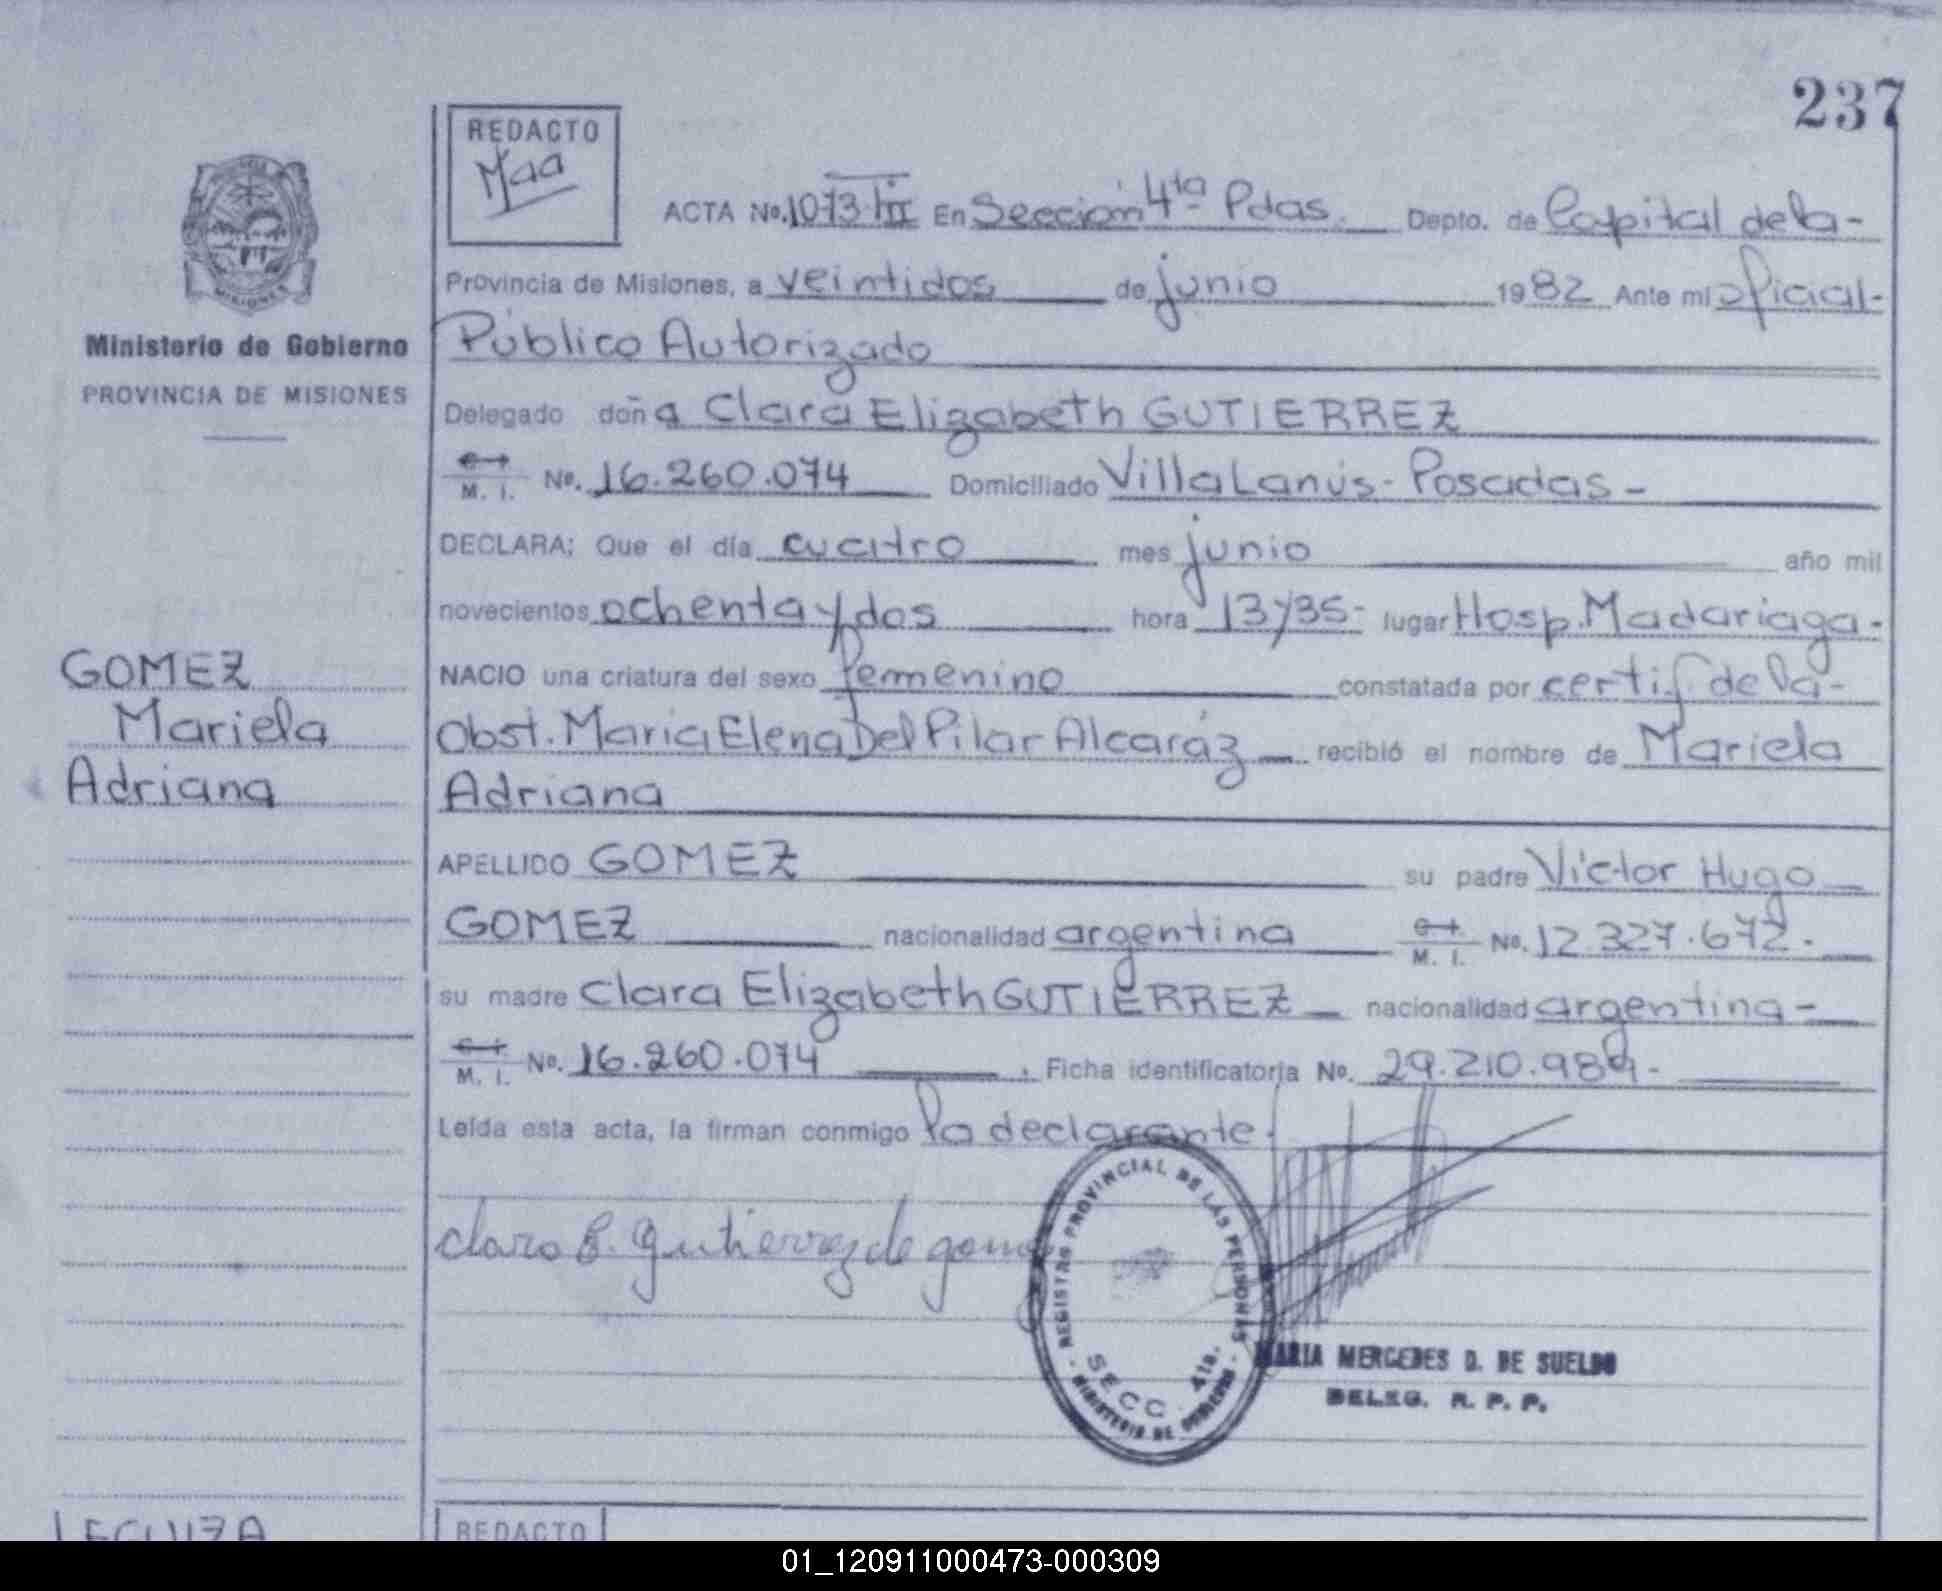 237
REDACTO
Maa
ACTA No. 1073-III En Sección 4ta Pdas. Depto. de Capital de la-
Provincia de Misiones, a veintidos de junio 1982 Ante mi oficial-
Público Autorizado
Delegado doña Clara Elizabeth GUTIERREZ
M. I. No. 16.260.074 Domiciliado Villa Lanús - Posadas -
DECLARA: Que el día cuatro mes junio año mil
novecientos ochenta y dos hora 13y35- lugar Hosp. Madariaga-
NACIO una criatura del sexo femenino constatada por certif. de la-
Obst. Maria Elena Del Pilar Alcaráz recibió el nombre de Mariela
Adriana
APELLIDO GOMEZ su padre Victor Hugo
GOMEZ nacionalidad argentina M. I. No. 12.327.672.
su madre Clara Elizabeth GUTIERREZ nacionalidad argentina-
M. I. No. 16.260.074 . Ficha identificatoria No. 29.210.989.-
Leída esta acta, la firman conmigo la declarante.
Clara E. Gutierrez de gome
REGISTRO PROVINCIAL DE LAS PERSONAS
SECC. 4ta.
MINISTERIO DE GOBIERNO
MARIA MERCEDES D. DE SUELDO
DELEG. R. P. P.
MISIONES
Ministerio de Gobierno
PROVINCIA DE MISIONES
GOMEZ
Mariela
Adriana
REDACTO
01_120911000473-000309